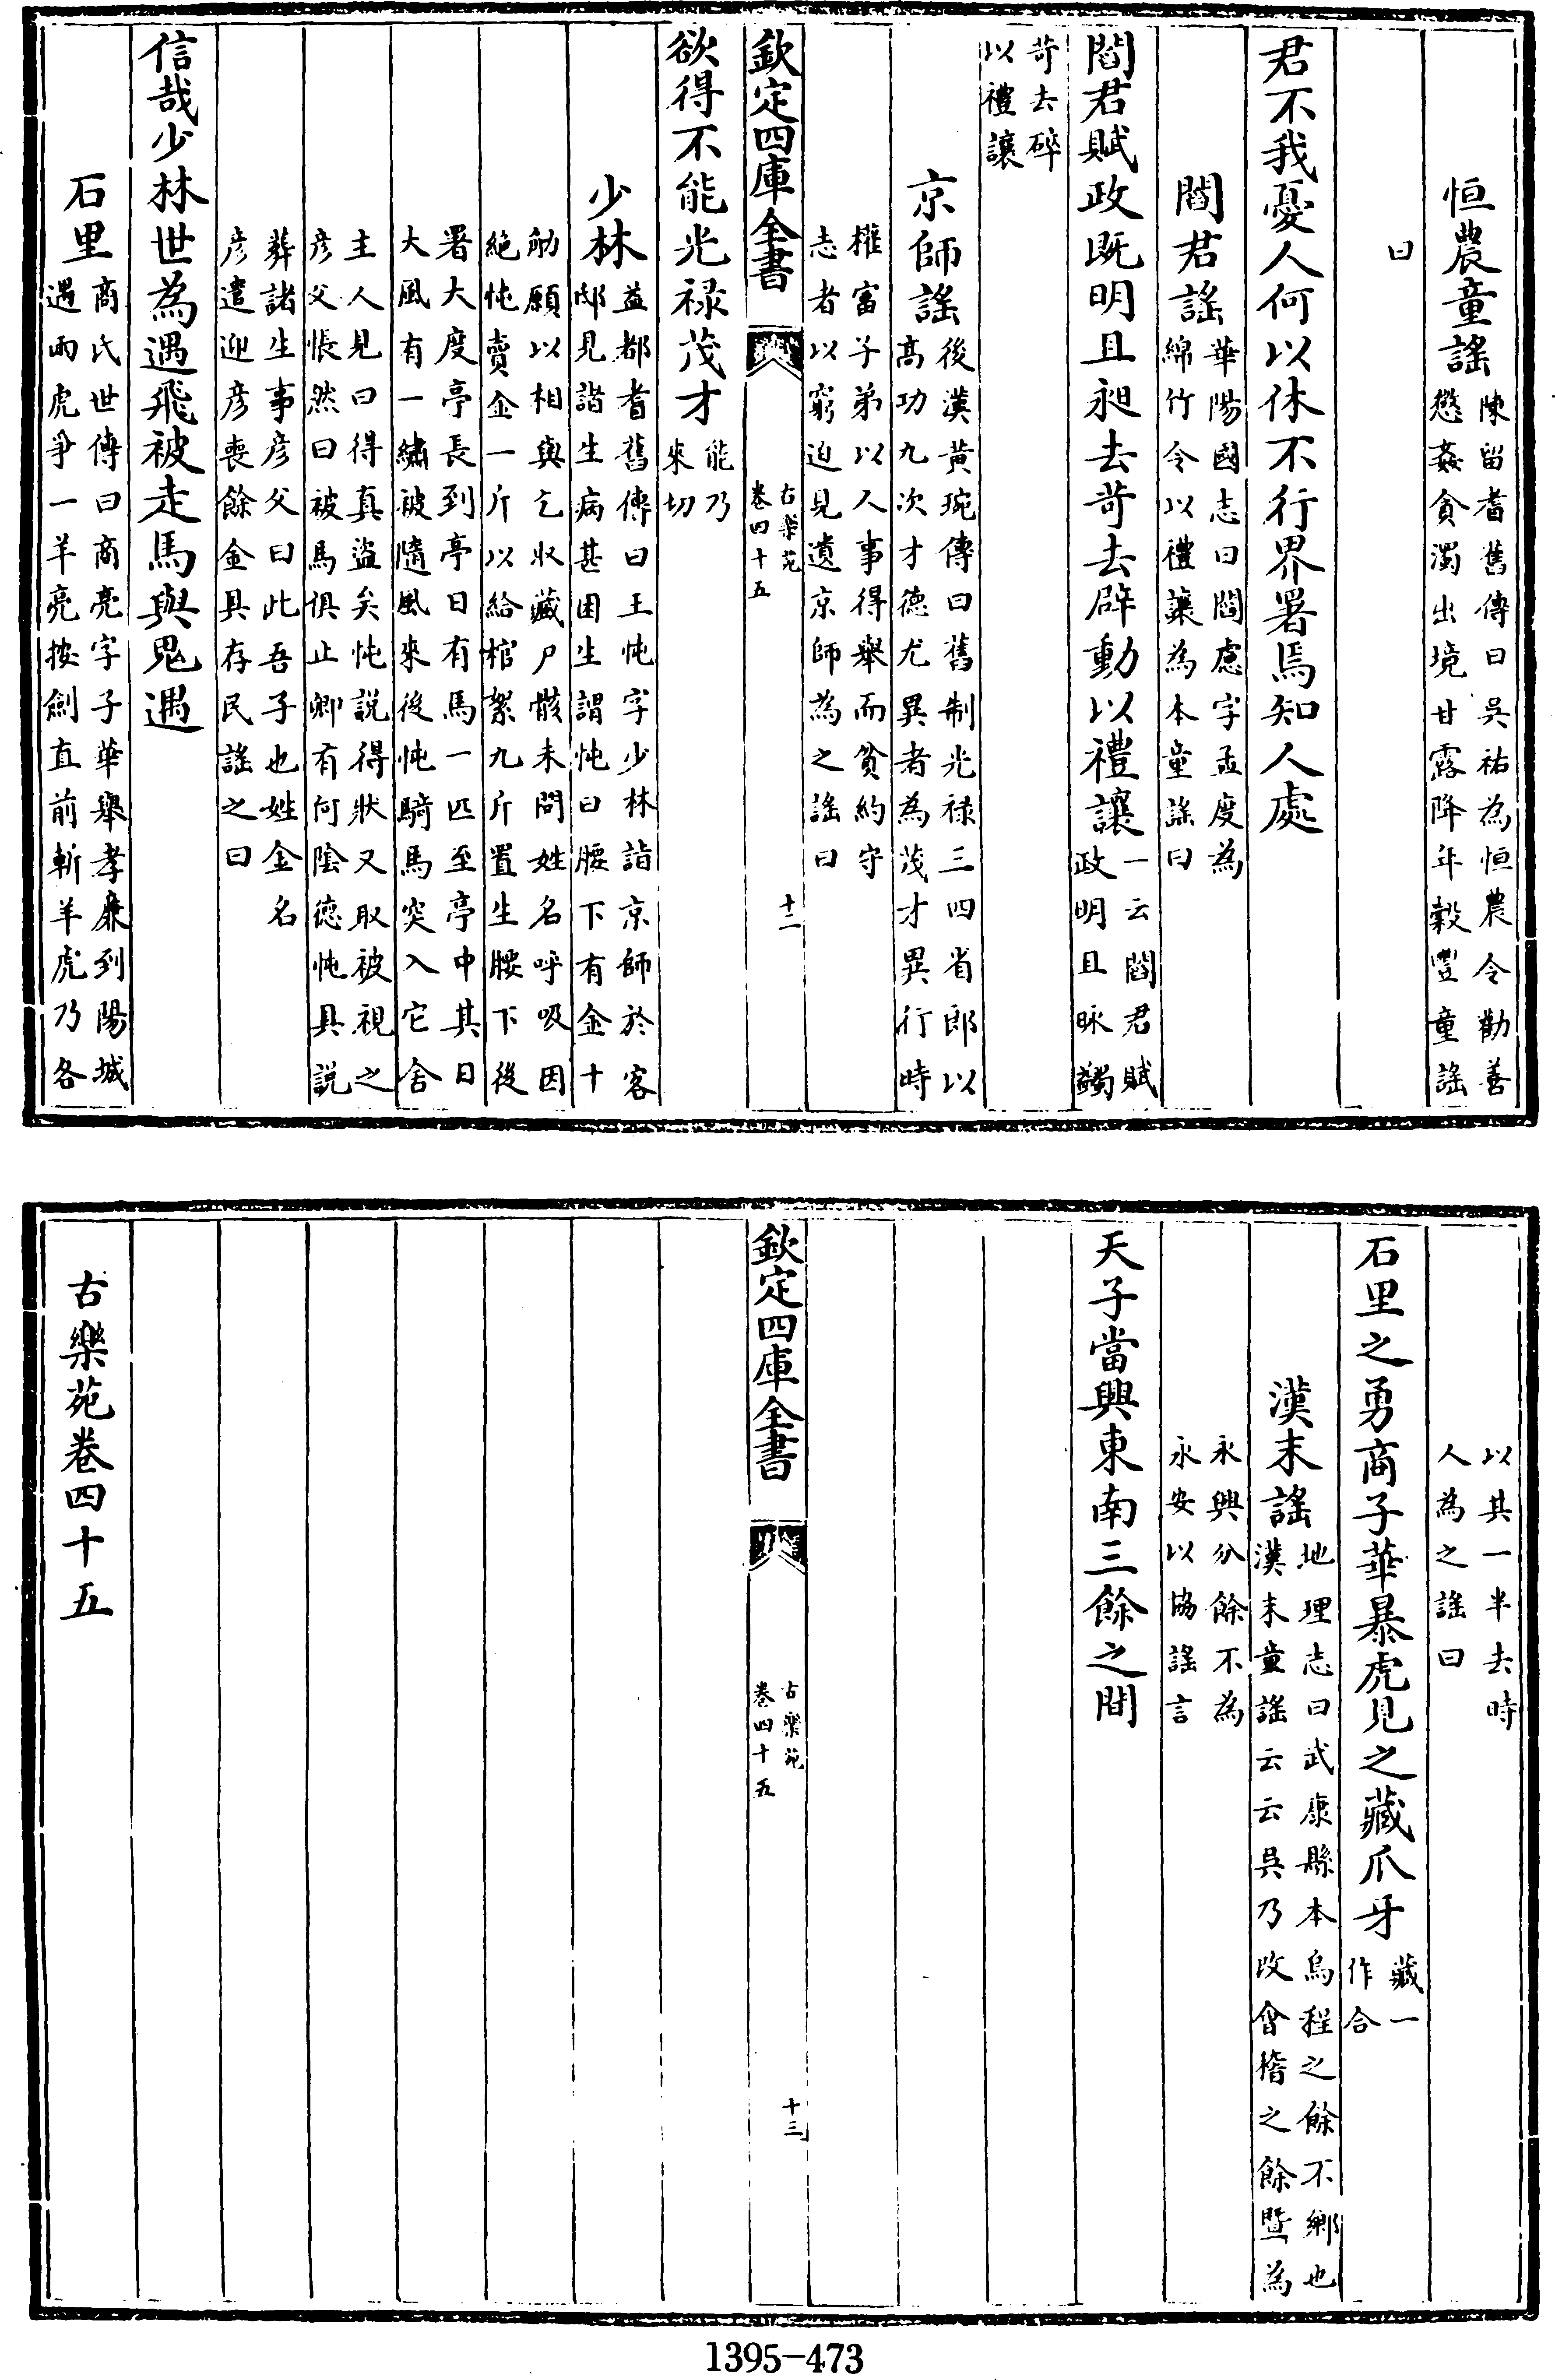 恒農童謠陳留耆舊傳曰吳祐為恒農令勸善
懲姦貪濁出境甘露降年穀豐童謠
曰
君不我憂人何以休不行界署焉知人處
閻君謠華陽國志曰閻憲字孟度為
綿竹令以禮讓為本童謠曰
閻君賦政既明且昶去苛去辟動以禮讓一云閻君賦
政明且昹蠲
苛去碎
以禮讓
京師謠後漢黄琬傳曰舊制光禄三四省郎以
髙功九次才德尤異者為茂才異行時
權富子弟以人事得舉而貧約守
志者以窮迫見遺京師為之謠曰
欽定四庫全書
古樂苑
卷四十五
十二
欲得不能光禄茂才能乃
來切
少林益都耆舊傳曰王忳字少林詣京師於客
邸見諸生病甚困生謂忳曰腰下有金十
觔願以相與乞收藏尸骸未問姓名呼吸因
絶忳賣金一斤以給棺絮九斤置生腰下後
署大度亭長到亭日有馬一匹至亭中其日
大風有一繡被隨風來後忳騎馬突入它舍
主人見曰得真盜矣忳説得狀又取被視之
彦父悵然曰被馬俱止卿有何陰德忳具説
葬諸生事彦父曰此吾子也姓金名
彦遣迎彦喪餘金具存民謠之曰
信哉少林世為遇飛被走馬與鬼遇
石里商氏世傳曰商亮字子華舉孝廉到陽城
遇兩虎爭一羊亮按劍直前斬羊虎乃各
以其一半去時
人為之謠曰
石里之勇商子華暴虎見之藏爪牙藏一
作合
漢末謠地理志曰武康縣本烏程之餘不鄉也
漢末童謠云云吳乃改會稽之餘暨為
永興分餘不為
永安以協謠言
天子當興東南三餘之間
欽定四庫全書
古樂苑
卷四十五
十三
古樂苑卷四十五
1395-473